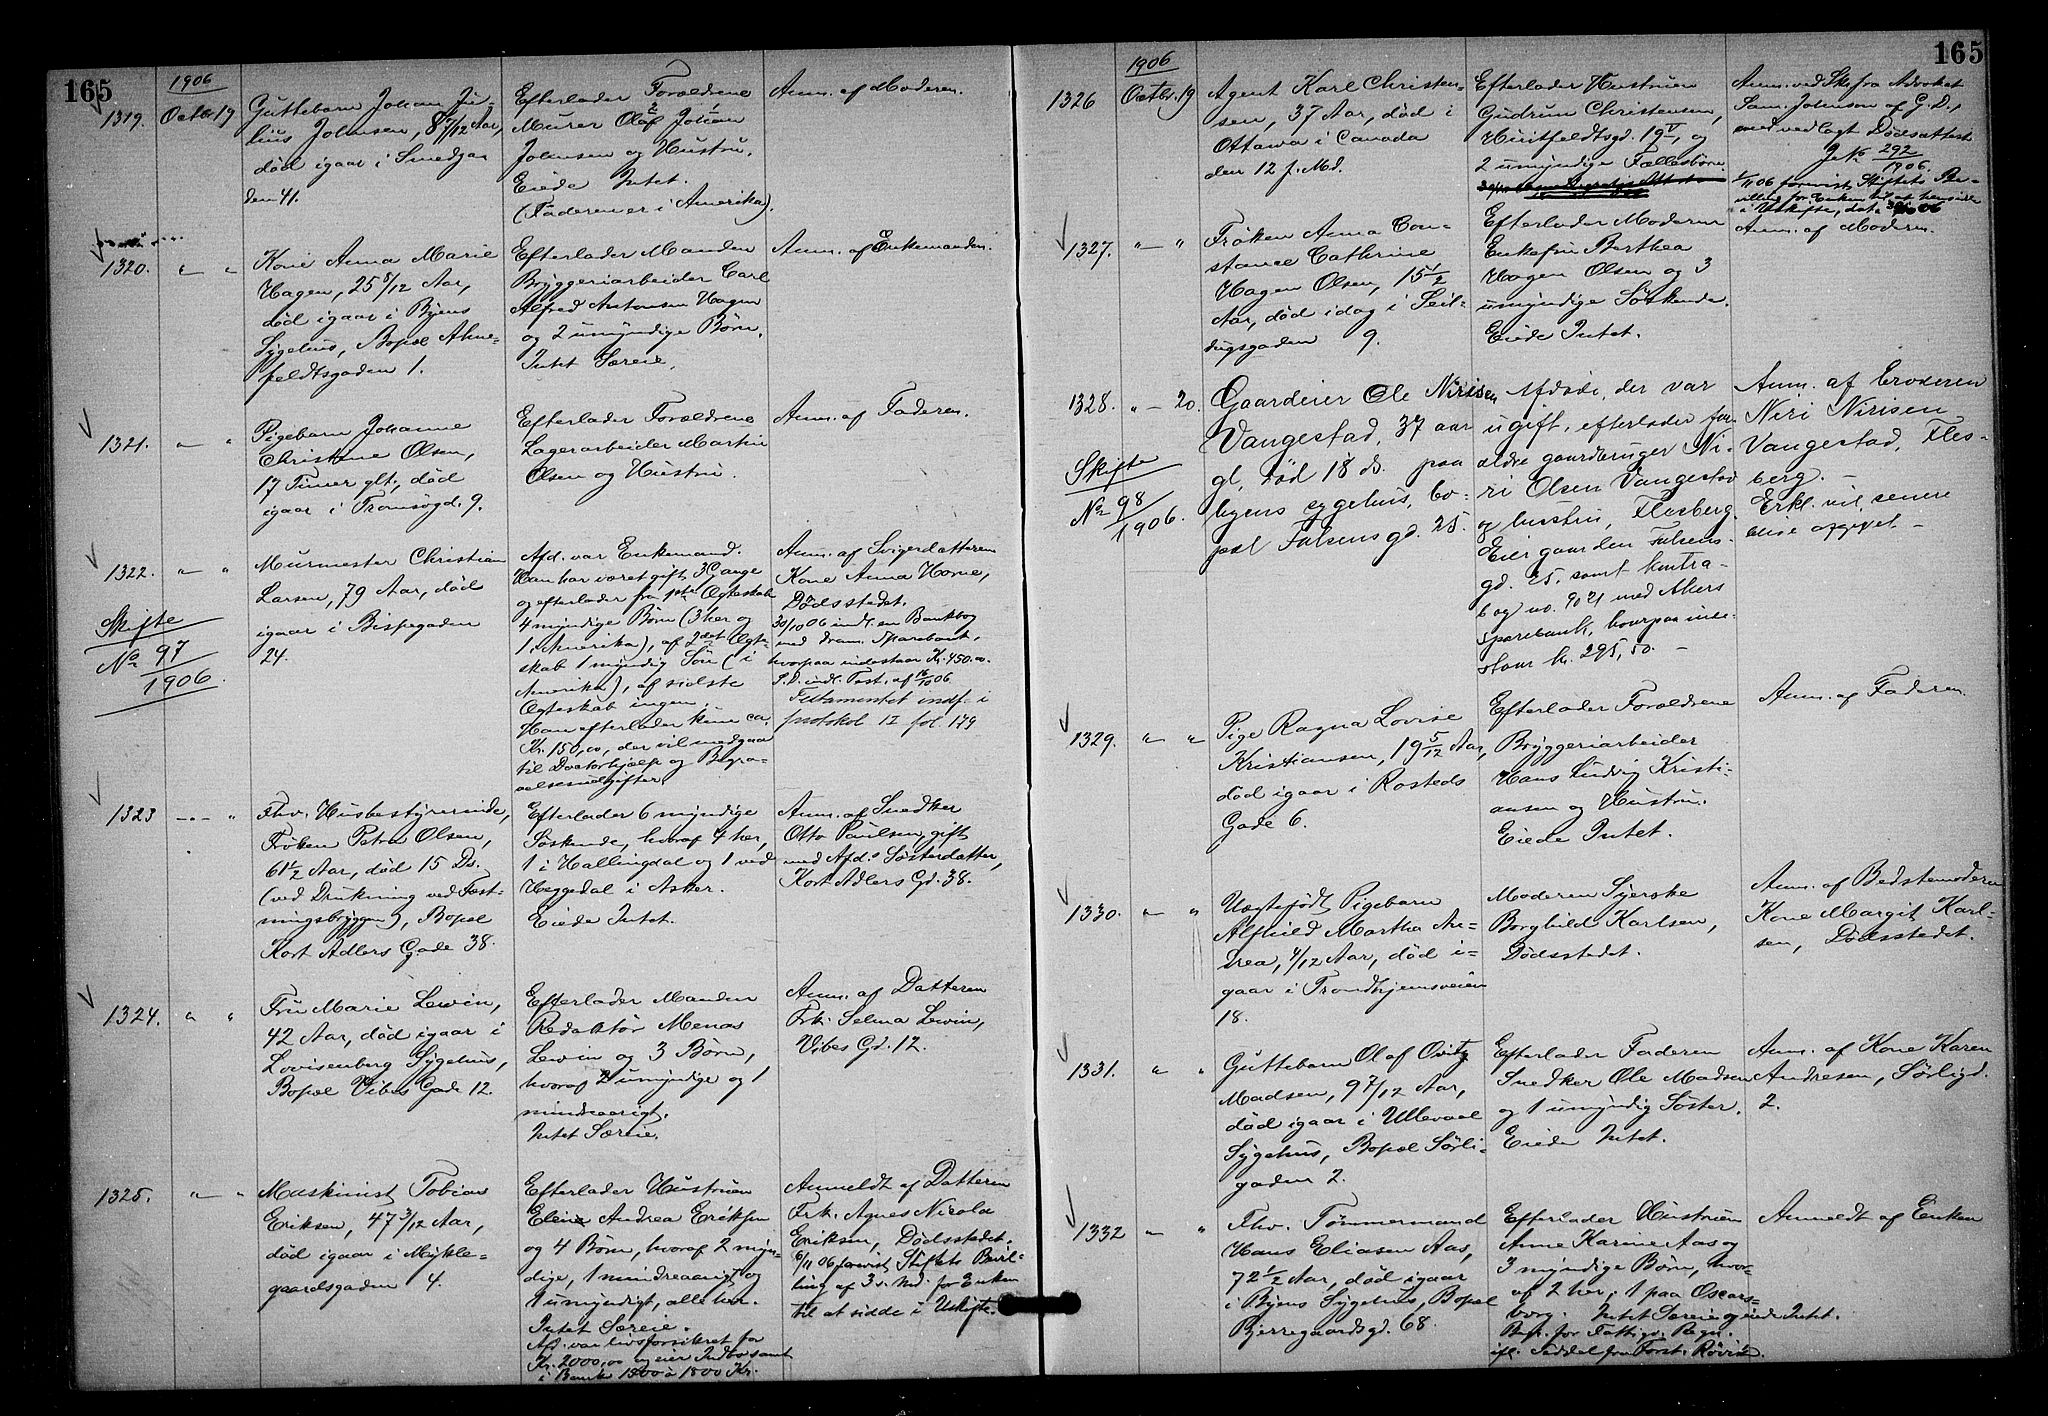 165
1906
1319.
Octbr 19
Guttebarn Johan Ju-
lius Johnsen, 8 7/12 Aar,
død igaar i Smedga-
den 41.
Efterlader Forældrene
Murer Olaf Johan
Johnsen og Hustru.
Eiede Intet.
(Faderen er i Amerika).
Anm. af Moderen.
1320.
" — "
Kone Anna Marie
Hagen, 25 8/12 Aar,
død igaar i Byens
Sygehus, Bopæl Ahne-
feldtsgaden 1.
Efterlader Manden
Bryggeriarbeider Carl
Alfred Antonsen Hagen
og 2 umyndige Børn.
Intet Særeie.
Anm. af Enkemanden.
1321.
" — "
Pigebarn Johanne
Christine Olsen,
17 Timer glt., død
igaar i Tromsøgd. 9.
Efterlader Forældrene
Lagerarbeider Martin
Olsen og Hustru.
Anm. af Faderen.
1322.
" — "
Skifte
No 97/1906.
Murmester Christian
Larsen, 79 Aar, død
igaar i Bispegaden
24.
Afd. var Enkemand.
Han har været gift 3 Gange
og efterlader fra 1ste Ægteskab
4 myndige Børn (3 her og
1 i Amerika), af 2det Ægte-
skab 1 myndig Søn (i
Amerika), af sidste
Ægteskab ingen.
Han efterlader kun ca.
Kr. 150,00, der vil medgaa
til Doctorhjælp og Begra-
velsesudgifter.
Anm. af Svigerdatteren
Kone Anna Horne,
Dødsstedet.
30/10 06 indl. en Bankbog
med Dram. Sparebank,
hvorpaa indestaar Kr. 450.00.
S.D. indl. Test. af 16/10 06
Testamentet indf. i
protokol 12 fol 179
1323
" — "
Fhv. Husbestyrerinde,
Frøken Petra Olsen,
61 1/2 Aar, død 15 Ds.
(ved Drukning ved Fæst-
ningsbryggen), Bopæl
Kort Adlers Gade 38.
Efterlader 6 myndige
Søskende, hvoraf 4 her,
1 i Hallingdal og 1 ved
Heggedal i Asker.
Eiede Intet.
Anm. af Snedker
Otto Paulsen, gift
med Afd.s Søsterdatter,
Kort Adlers Gd. 38.
1324.
" "
Fru Marie Lewin,
42 Aar, død igaar i
Lovisenberg Sygehus,
Bopæl Vibes Gade 12.
Efterlader Manden
Redaktør Menas
Lewin og 3 Børn,
hvoraf 2 umyndige og 1
mindreaarigt.
Intet Særeie.
Anm. af Datteren
Frk. Selma Lewin,
Vibes Gd. 12.
1325.
" — "
Maskinist Tobias
Eriksen, 47 3/12 Aar,
død igaar i Mykle-
gaardsgaden 4.
Efterlader Hustruen
Eline Andrea Eriksen
og 4 Børn, hvoraf 2 myn-
dige, 1 mindreaarigt og
1 umyndigt, alle her.
Intet Særeie.
Afd. var livsforsikret for
Kr. 2000,00 og eier Indbo samt
i Bank 1500 à 1800 Kr.
Anmeldt af Datteren
Frk. Agnes Nicola
Eriksen, Dødsstedet.
6/11 06 forevist Stiftets Bevil-
ling af 3 d. Md. for Enken
til at sidde i Uskifte.
165
1906
1326
Octbr. 19
Agent Karl Christen-
sen, 37 Aar, død i
Ottawa i Canada
den 12 f. Md.
Efterlader Hustruen
Gudrun Christensen,
Huitfeldtsgd. 19 V, og
2 umyndige Fællesbørn
Anm. ved Skr. fra Advokat
Sam. Johnson af G. D.,
med vedlagt Dødsattest
J No 292/1906.
1/11 06 forevist Stiftets Be-
villing for Enken til at hensidde
i Uskifte, dat. 06
1327.
" — "
Frøken Anna Con-
stance Cathrine
Hagen Olsen, 15 1/2
Aar, død idag i Seil-
dugsgaden 9.
Efterlader Moderen
Enkefru Berthea
Hagen Olsen og 3
umyndige Søskende.
Eiede Intet.
Anm. af Moderen.
1328.
" — 20.
Skifte
No 98/1906.
Gaardeier Ole Nirisen
Vangestad, 37 aar
gl., død 18 ds. paa
byens sygehus, bo-
pæl Falsens gd. 25.
Afdøde, der var
ugift, efterlader for-
ældre gaardbruger Ni-
ri Olsen Vangestad
og hustru, Flesberg.
Eier gaarden Falsens
gd. 25, samt kontra-
bog no. 9021 med Akers
Sparebank, hvorpaa inde-
staar kr. 295,50. —
Anm. af broderen
Niri Nirisen
Vangestad, Fles-
berg. —
Erkl. vil senere
blive opgivet —
1329.
" — "
Pige Ragna Lovise
Kristiansen, 19 5/12 Aar,
død igaar i Rosteds
Gade 6.
Efterlader Forældrene
Bryggeriarbeider
Hans Ludvig Kristi-
ansen og Hustru.
Eiede Intet.
Anm. af Faderen.
1330.
" — "
Uægtefødt Pigebarn
Alfhild Martha An-
drea, 4/12 Aar, død i-
gaar i Trondhjemsveien
18.
Moderen Syerske
Borghild Karlsen,
Dødsstedet.
Anm. af Bedstemoderen
Kone Margit Karl-
sen, Dødsstedet.
1331.
" "
Guttebarn Olaf Ovitz
Madsen, 9 7/12 Aar,
død igaar i Ullevaal
Sygehus, Bopæl Sørli-
gaden 2.
Efterlader Faderen
Snedker Ole Madsen
og 1 umyndig Søster.
Eiede Intet.
Anm. af Kone Karen
Andresen, Sørligd.
2.
1332
" — "
Fhv. Tømmermand
Hans Eliasen Aas,
72 1/2 Aar, død igaar
i Byens Sygehus, Bopæl
Bjerregaardsgd. 68.
Efterlader Hustruen
Anne Karine Aas og
3 myndige Børn, hvor-
af 2 her, 1 paa Oscars-
borg. Intet Særeie og eiede Intet.
Begr. for Fattigv. Regn.
ifl. Seddel fra Forst.
Anmeldt af Enken